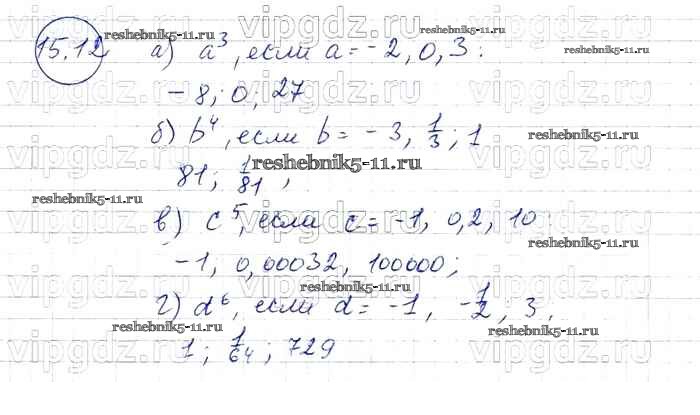 15.12 а) a³, если a = -2, 0, 3:
-8; 0; 27
б) b⁴, если b = -3, 1/3; 1
81; 1/81,
в) c⁵, если c = -1, 0,2, 10
-1, 0,00032, 100000;
г) d⁶, если d = -1, -1/2, 3.
1; 1/64; 729
vipgdz.ru
reshebnik5-11.ru